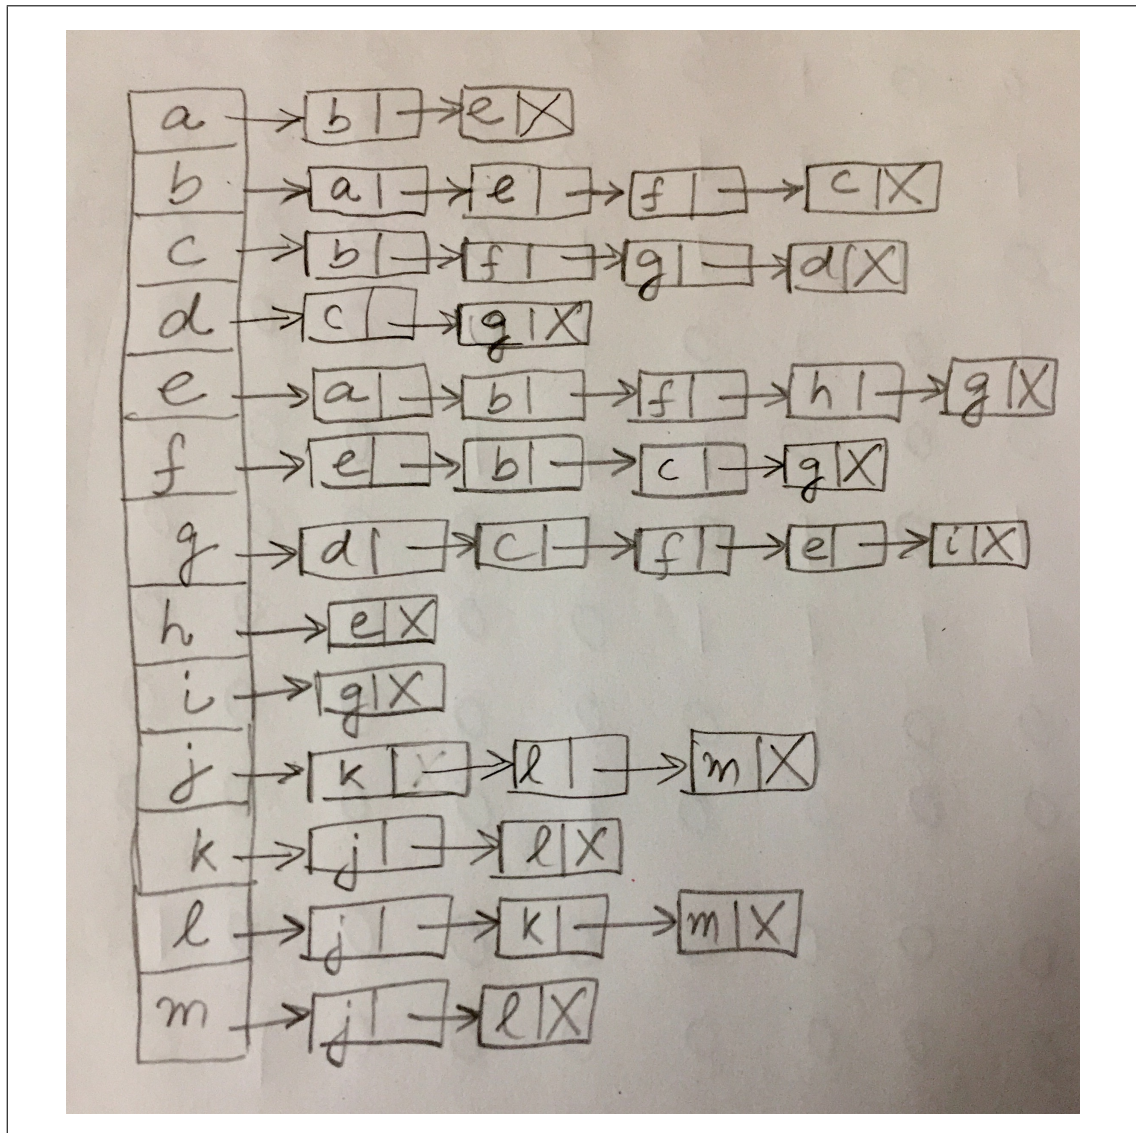 a b e X
b a e f c X
c b f g d X
d c g X
e a b f h g X
f e b c g X
g d c f e i X
h e X
i g X
j k l m X
k j l X
l j k m X
m j l X